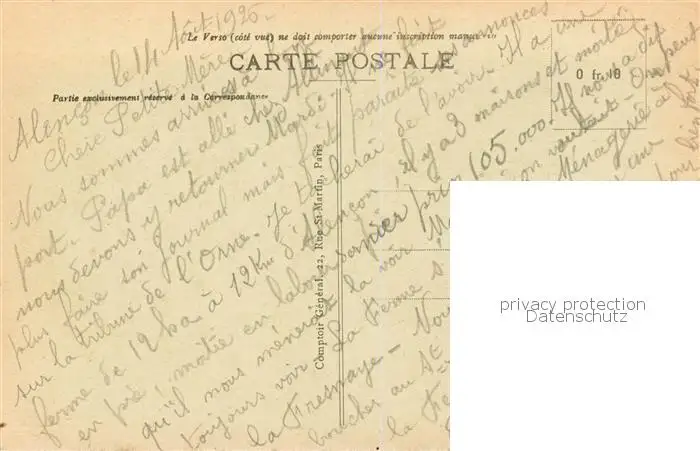 Alençon le 14 Août 1925.
Chère Petite Mère
Nous sommes arrivés à bon
port. Papa est allé chez
nous devons y retourner Mardi. fait
plus faire son Journal mais fait paraître ses annonces
sur la tribune de l'Orne. Je tâcherai de l'avoir. Il a une
ferme de 12 ha à 12 Km d'Alençon, il y a 3 maisons et moitié
en pré, moitié en labour dernier prix 105.000. Il nous a dit
qu'il nous mènerait la voir voulait. On peut
toujours voir. La Ferme Ménagerie à
la Fresnaye - Nous une
boucher au St
la
Le Verso (côté vu) ne doit comporter aucune inscription manuscrite
CARTE POSTALE
Partie exclusivement réservée à la Correspondance
0 fr. 10
Comptoir Général, 22, Rue St-Martin, Paris
privacy protection
Datenschutz